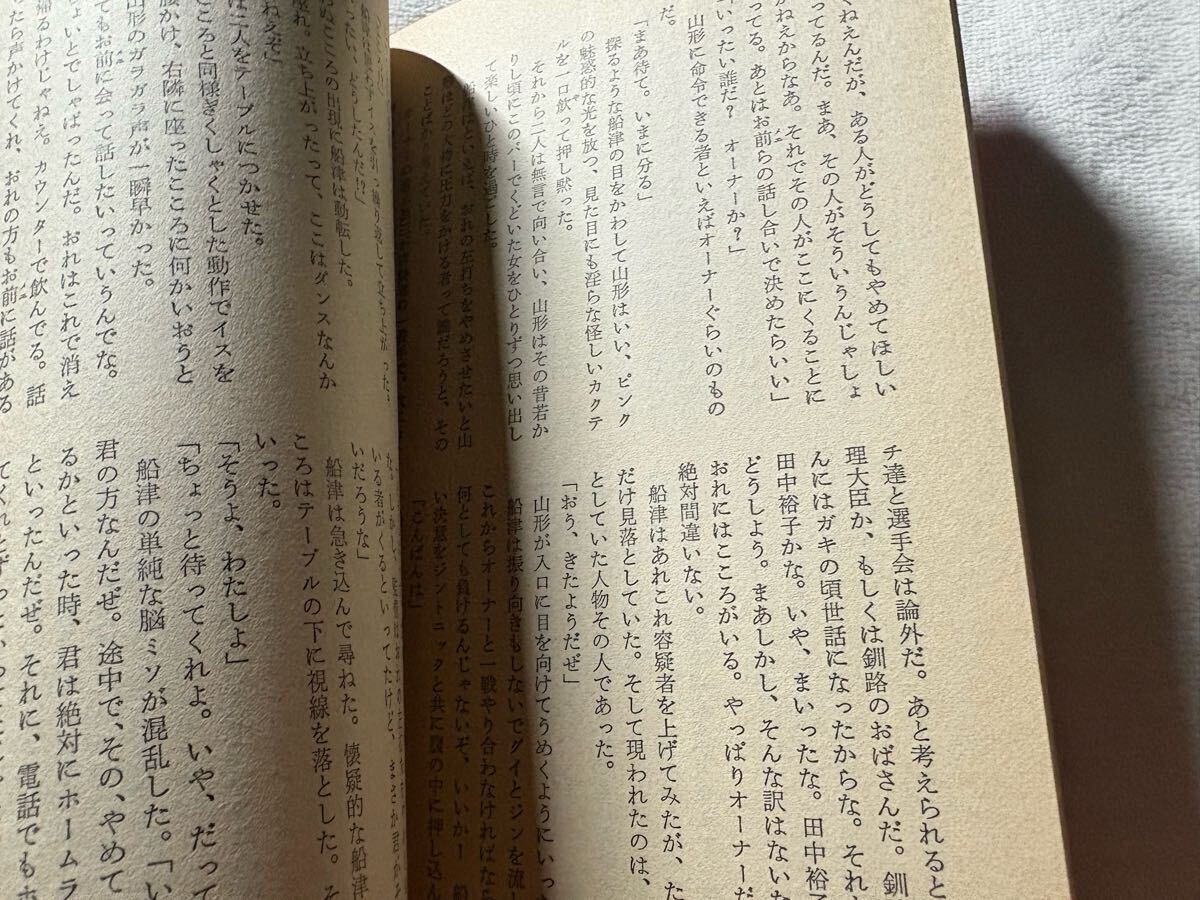 くねえんだが、ある人がどうしてもやめてほしい
ってるんだ。まあ、その人がそういうんじゃしょ
がねえからなあ。それでその人がここにくることに
ってる。あとはお前らの話し合いで決めたらいい」
いったい誰だ？　オーナーか？」
山形に命令できる者といえばオーナーぐらいのもの
だ。
「まあ待て。いまに分る」
探るような船津の目をかわして山形はいい、ピンク
の魅惑的な光を放つ、見た目にも淫らな怪しいカクテ
ルを一口飲って押し黙った。
それから二人は無言で向い合い、山形はその昔若か
りし頃にこのバーでくどいた女をひとりずつ思い出し
て楽しいひと時を過ごした。
船津はといえば、おれの左打ちをやめさせたいと山
形に圧力をかける者って誰だろうと、その
チ達と選手会は論外だ。あと考えられると
理大臣か、もしくは釧路のおばさんだ。釧
んにはガキの頃世話になったからな。それ
田中裕子かな。いや、まいったな。田中裕子
どうしよう。まあしかし、そんな訳はないな
おれにはこころがいる。やっぱりオーナーだ
絶対間違いない。
船津はあれこれ容疑者を上げてみたが、た
だけ見落としていた。そして現われたのは、
としていた人物その人であった。
「おう、きたようだぜ」
山形が入口に目を向けてうめくようにいっ
船津は振り向きもしないでグイとジンを流し
これからオーナーと一戦やり合わなければなら
何としても負けるんじゃないぞ、いいか！　船
い決意をジントニックと共に腹の中に押し込ん
「こんばんは」
イスを引っ繰り返して立ち上がった。
ったい、どうしたんだ!?」
ぬこころの出現に船津は動転した。
座れ。立ち上がったって、ここはダンスなんか
ねえぞ」
は二人をテーブルにつかせた。
ころと同様ぎくしゃくとした動作でイスを
腰かけ、右隣に座ったこころに何かいおうと
山形のガラガラ声が一瞬早かった。
ちょいとでしゃばったんだ。おれはこれで消え
てもお前に会って話したいっていうんでな。
帰るわけじゃねえ。カウンターで飲んでる。話
ったら声かけてくれ、おれの方もお前に話がある
いる者がくるといってたけど、まさか君が
いだろうな」
船津は急き込んで尋ねた。懐疑的な船津
ころはテーブルの下に視線を落とした。そ
いった。
「そうよ、わたしよ」
「ちょっと待ってくれよ。いや、だって
船津の単純な脳ミソが混乱した。「い
君の方なんだぜ。途中で、その、やめて
るかといった時、君は絶対にホームラ
といったんだぜ。それに、電話でもホ